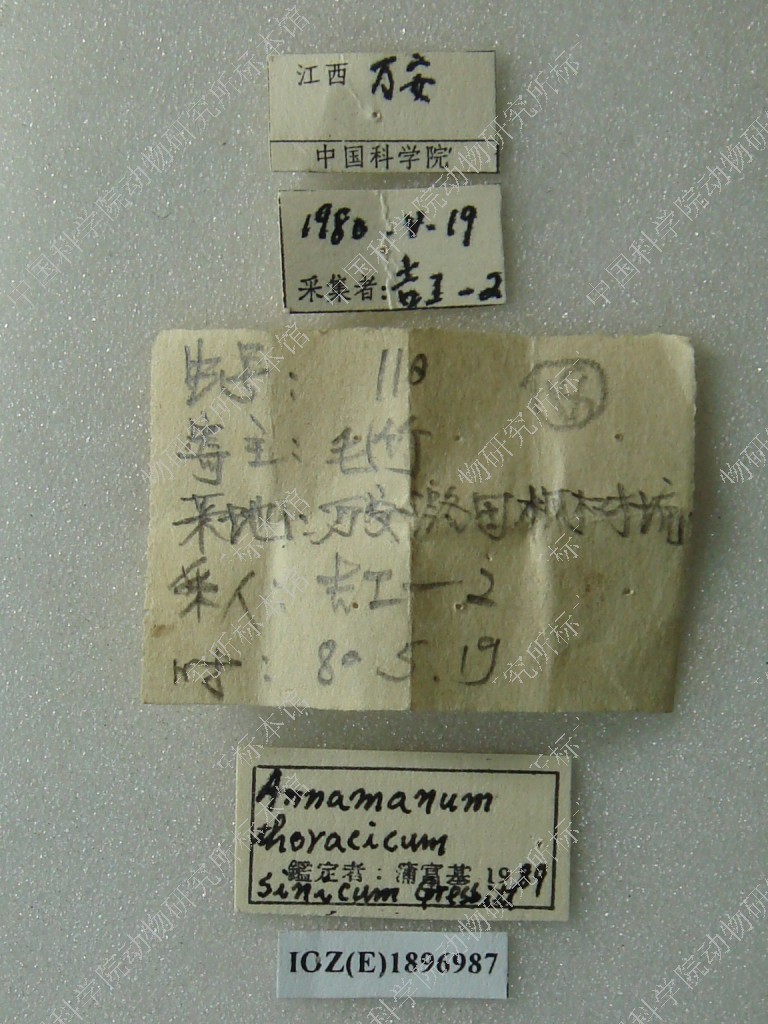 江西 万安
中国科学院
1980.V.19
采集者:吉工-2
虫号: 110
寄主: 毛竹
采地: 万安潞田枫树坑
采人: 吉工一2
时: 80.5.19
Annamanum
thoracicum
鑑定者:蒲富基 1989
sinicum Gressitt
IOZ(E)1896987
中国科学院动物研究所标本馆